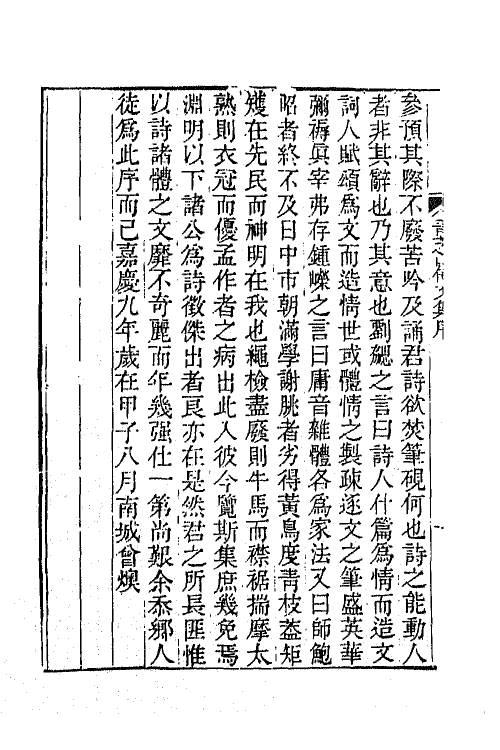 參預其際不廢苦吟及誦君詩欲焚筆硯何也詩之能動人
者非其辭也乃其意也劉勰之言曰詩人什篇爲情而造文
詞人賦頌爲文而造情世或體情之製疎逐文之筆盛英華
彌縟眞宰弗存鍾嶸之言曰庸音雜體各爲家法又曰師鮑
昭者終不及日中市朝滿學謝朓者劣得黃鳥度靑枝葢矩
矱在先民而神明在我也繩檢盡廢則牛馬而襟裾揣摩太
熟則衣冠而優孟作者之病出此入彼今覽斯集庶幾免焉
淵明以下諸公爲詩徵傑出者艮亦在是然君之所長匪惟
以詩諸體之文靡不奇麗而年幾强仕一第尚艱余忝鄉人
徒爲此序而已嘉慶九年歲在甲子八月南城曾燠